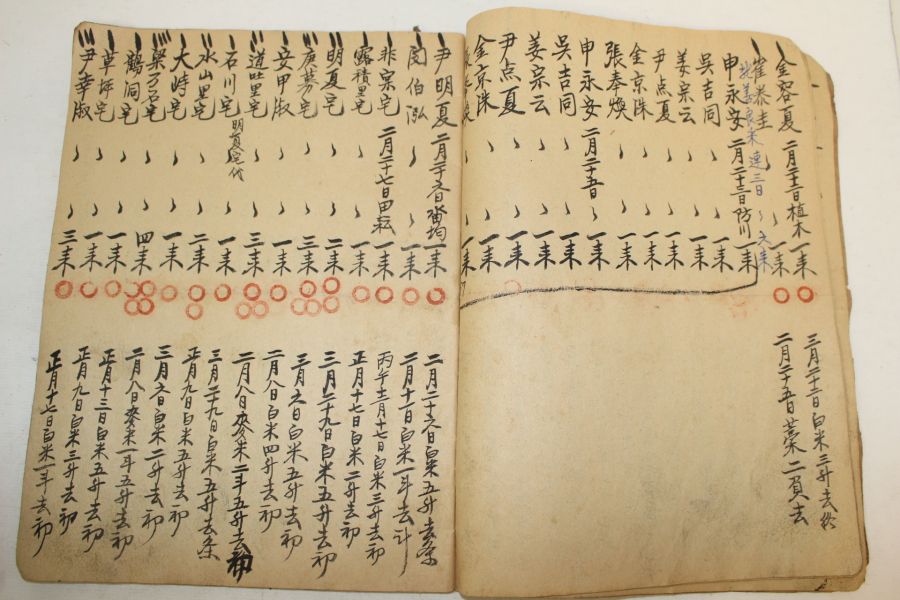 金容夏 二月二十二日植木 一来 三月二十三日白米三升去
崔泰圭 一来 二月二十五日藁二負去
善良来 連三日 六来
申永安 二月二十三日防川 一来
吳吉同 一来
姜宗云 一来
尹点夏 一来
金京洙 一来
張奉煥 一来
申永安 二月二十五日 一来
吳吉同 一来
姜宗云 一来
尹点夏 一来
金京洙 一来
一来
尹明夏 二月二十六日畓均 一来 二月二十六日白米五升去条
閔伯泓 一来 二月十一日白米一斗去
非宗宅 二月二十七日田耘 一来 丙午十二月十七日白米三升去初
露積里宅 一来 正月十七日白米二升去初
明夏宅 二来 三月二十九日白米五升去初
宅 三来 三月六日白米五升去初
安甲淑 一来 二月八日白米四升去初
道吐里宅 三来 二月八日麥米二斗五升去初
石川宅 明夏宅代 一来 三月二十九日白米五升去条
水山里宅 二来 正月九日白米五升去初
大峙宅 一来 三月六日白米二升去初
梁 石宅 四来 二月八日麥米一斗五升去初
鶴洞宅 一来 正月十三日白米五升去初
草坪宅 一来 正月九日白米三升去初
尹幸淑 三来 正月十七日白米一斗去初